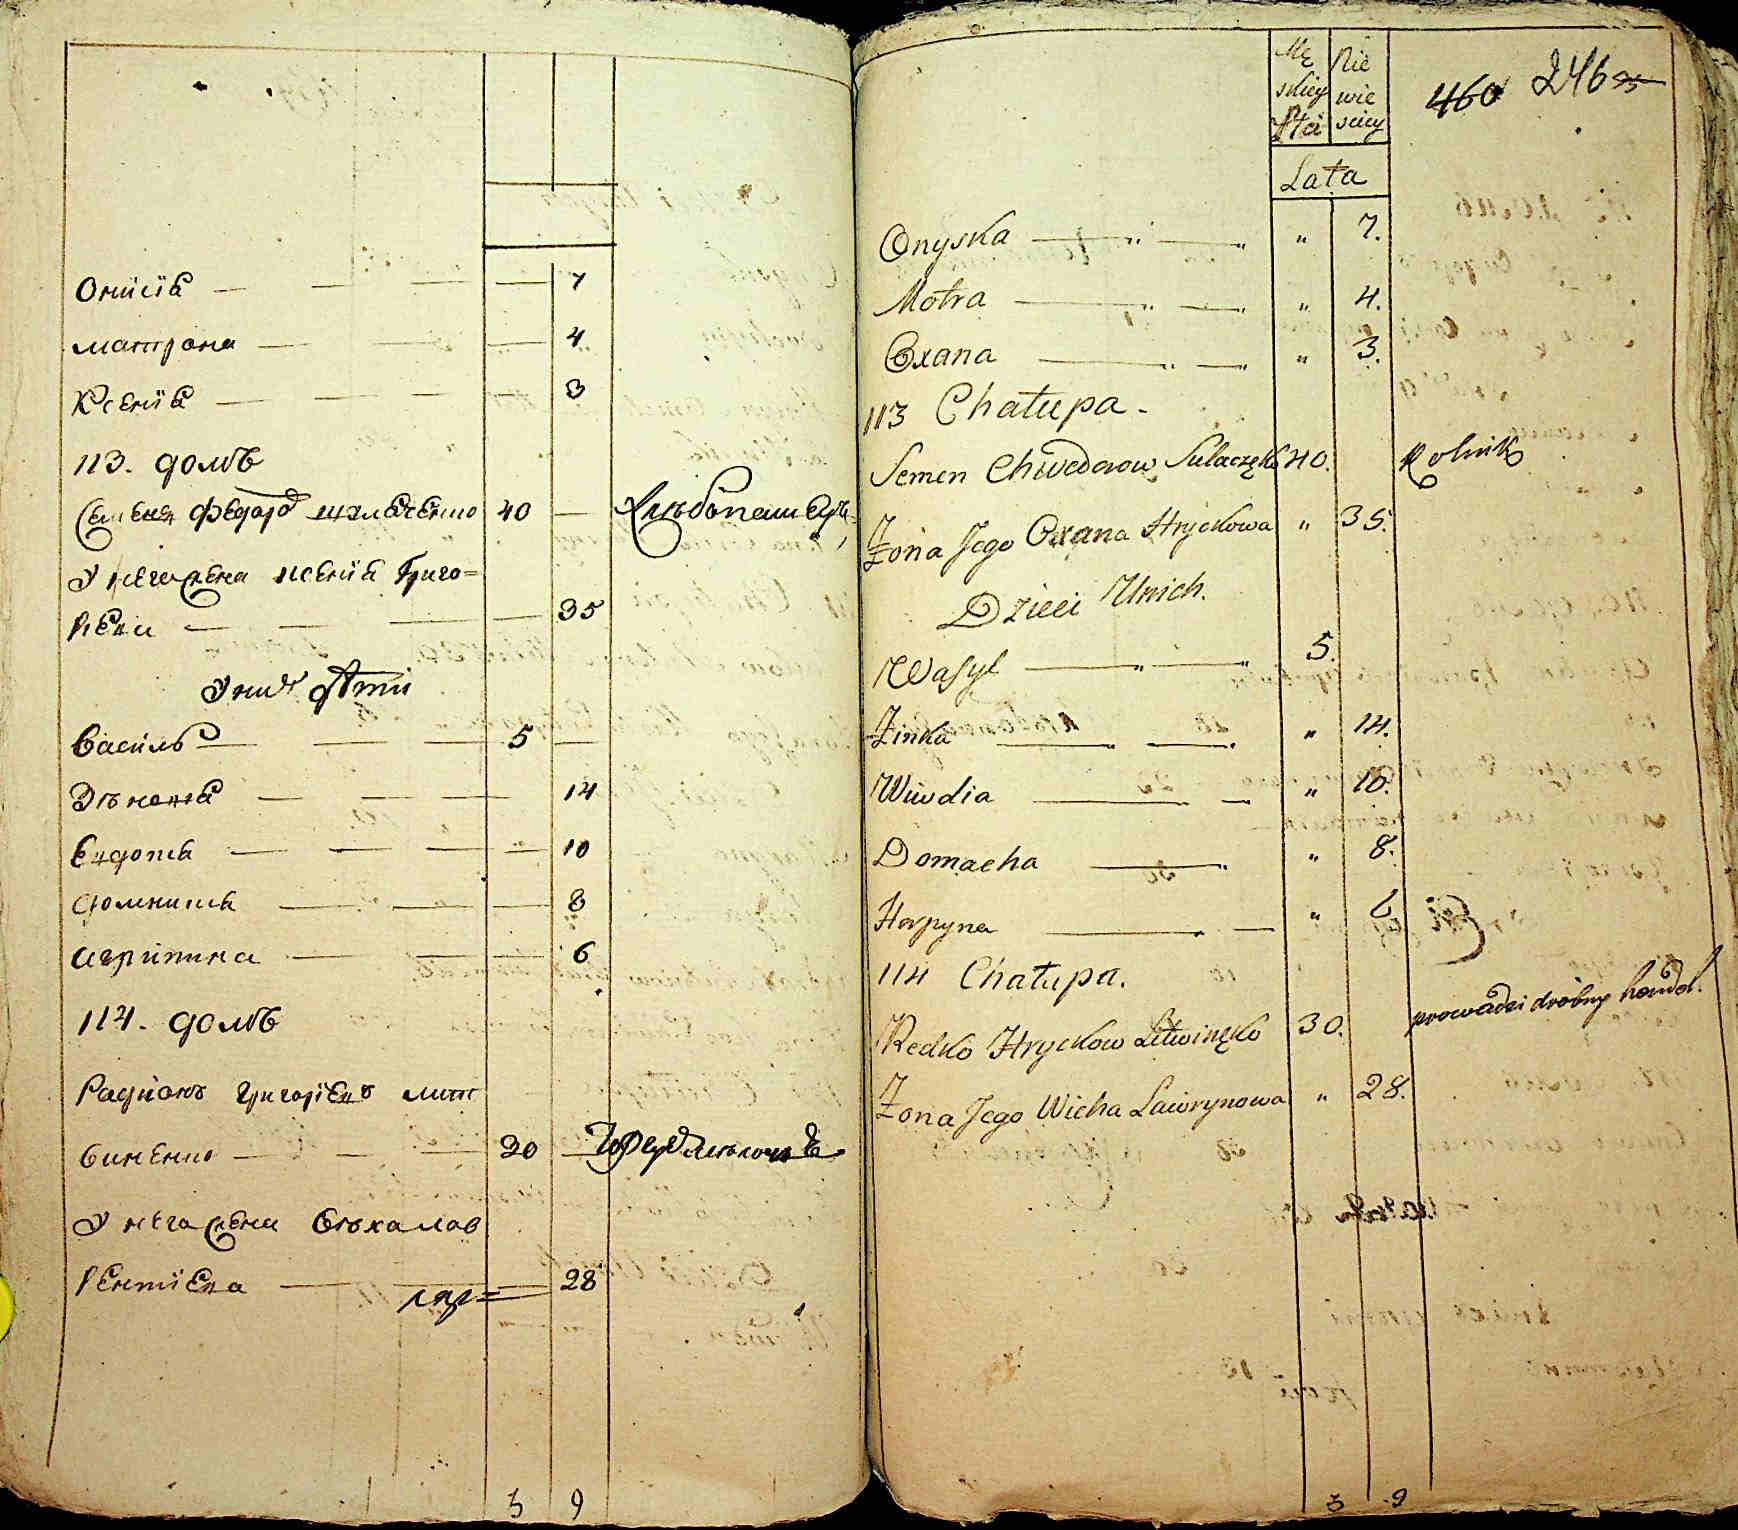 Онисїѣ — — — — 7
матрона — — — 4
Ксенїѣ — — — 3
113. домъ
40 — Хлѣбопашецъ
У него жена Ксенїѣ Григо=
рꙗва — — — — 35
У них дѣти
Василь — — — 5 —
Зѣновїѣ — — — 14
Евдопїѣ — — — — 10
Домникїѣ — — — 8
Агрипина — — — 6
114. домъ
Радионъ Григорїевъ лит
виненко — — — 30 —
У него жена
рентїева — — 28
3 9
Mę
skiey
Płci
Nie
wie
sciey
460 246
Lata
Onyska — " — " " 7.
Motra — " — " " 4.
Oxana — " — " " 3.
113 Chałupa.
Semen Chwedorow Sulaczęko 40. Rolnik
Żona Jego Oxana Hryckowa " 35.
Dzieci Unich.
Wasyl — " — " 5.
Zinka — " — " " 14.
Wiwdia — — " 10.
Domacha — " " 8.
Harpyna — " — " 6
114 Chałupa.
Redko Hryckow Litwinęko 30. prowadzi drobny handel.
Żona Jego Wicha Lawrynowa " 28.
3 9